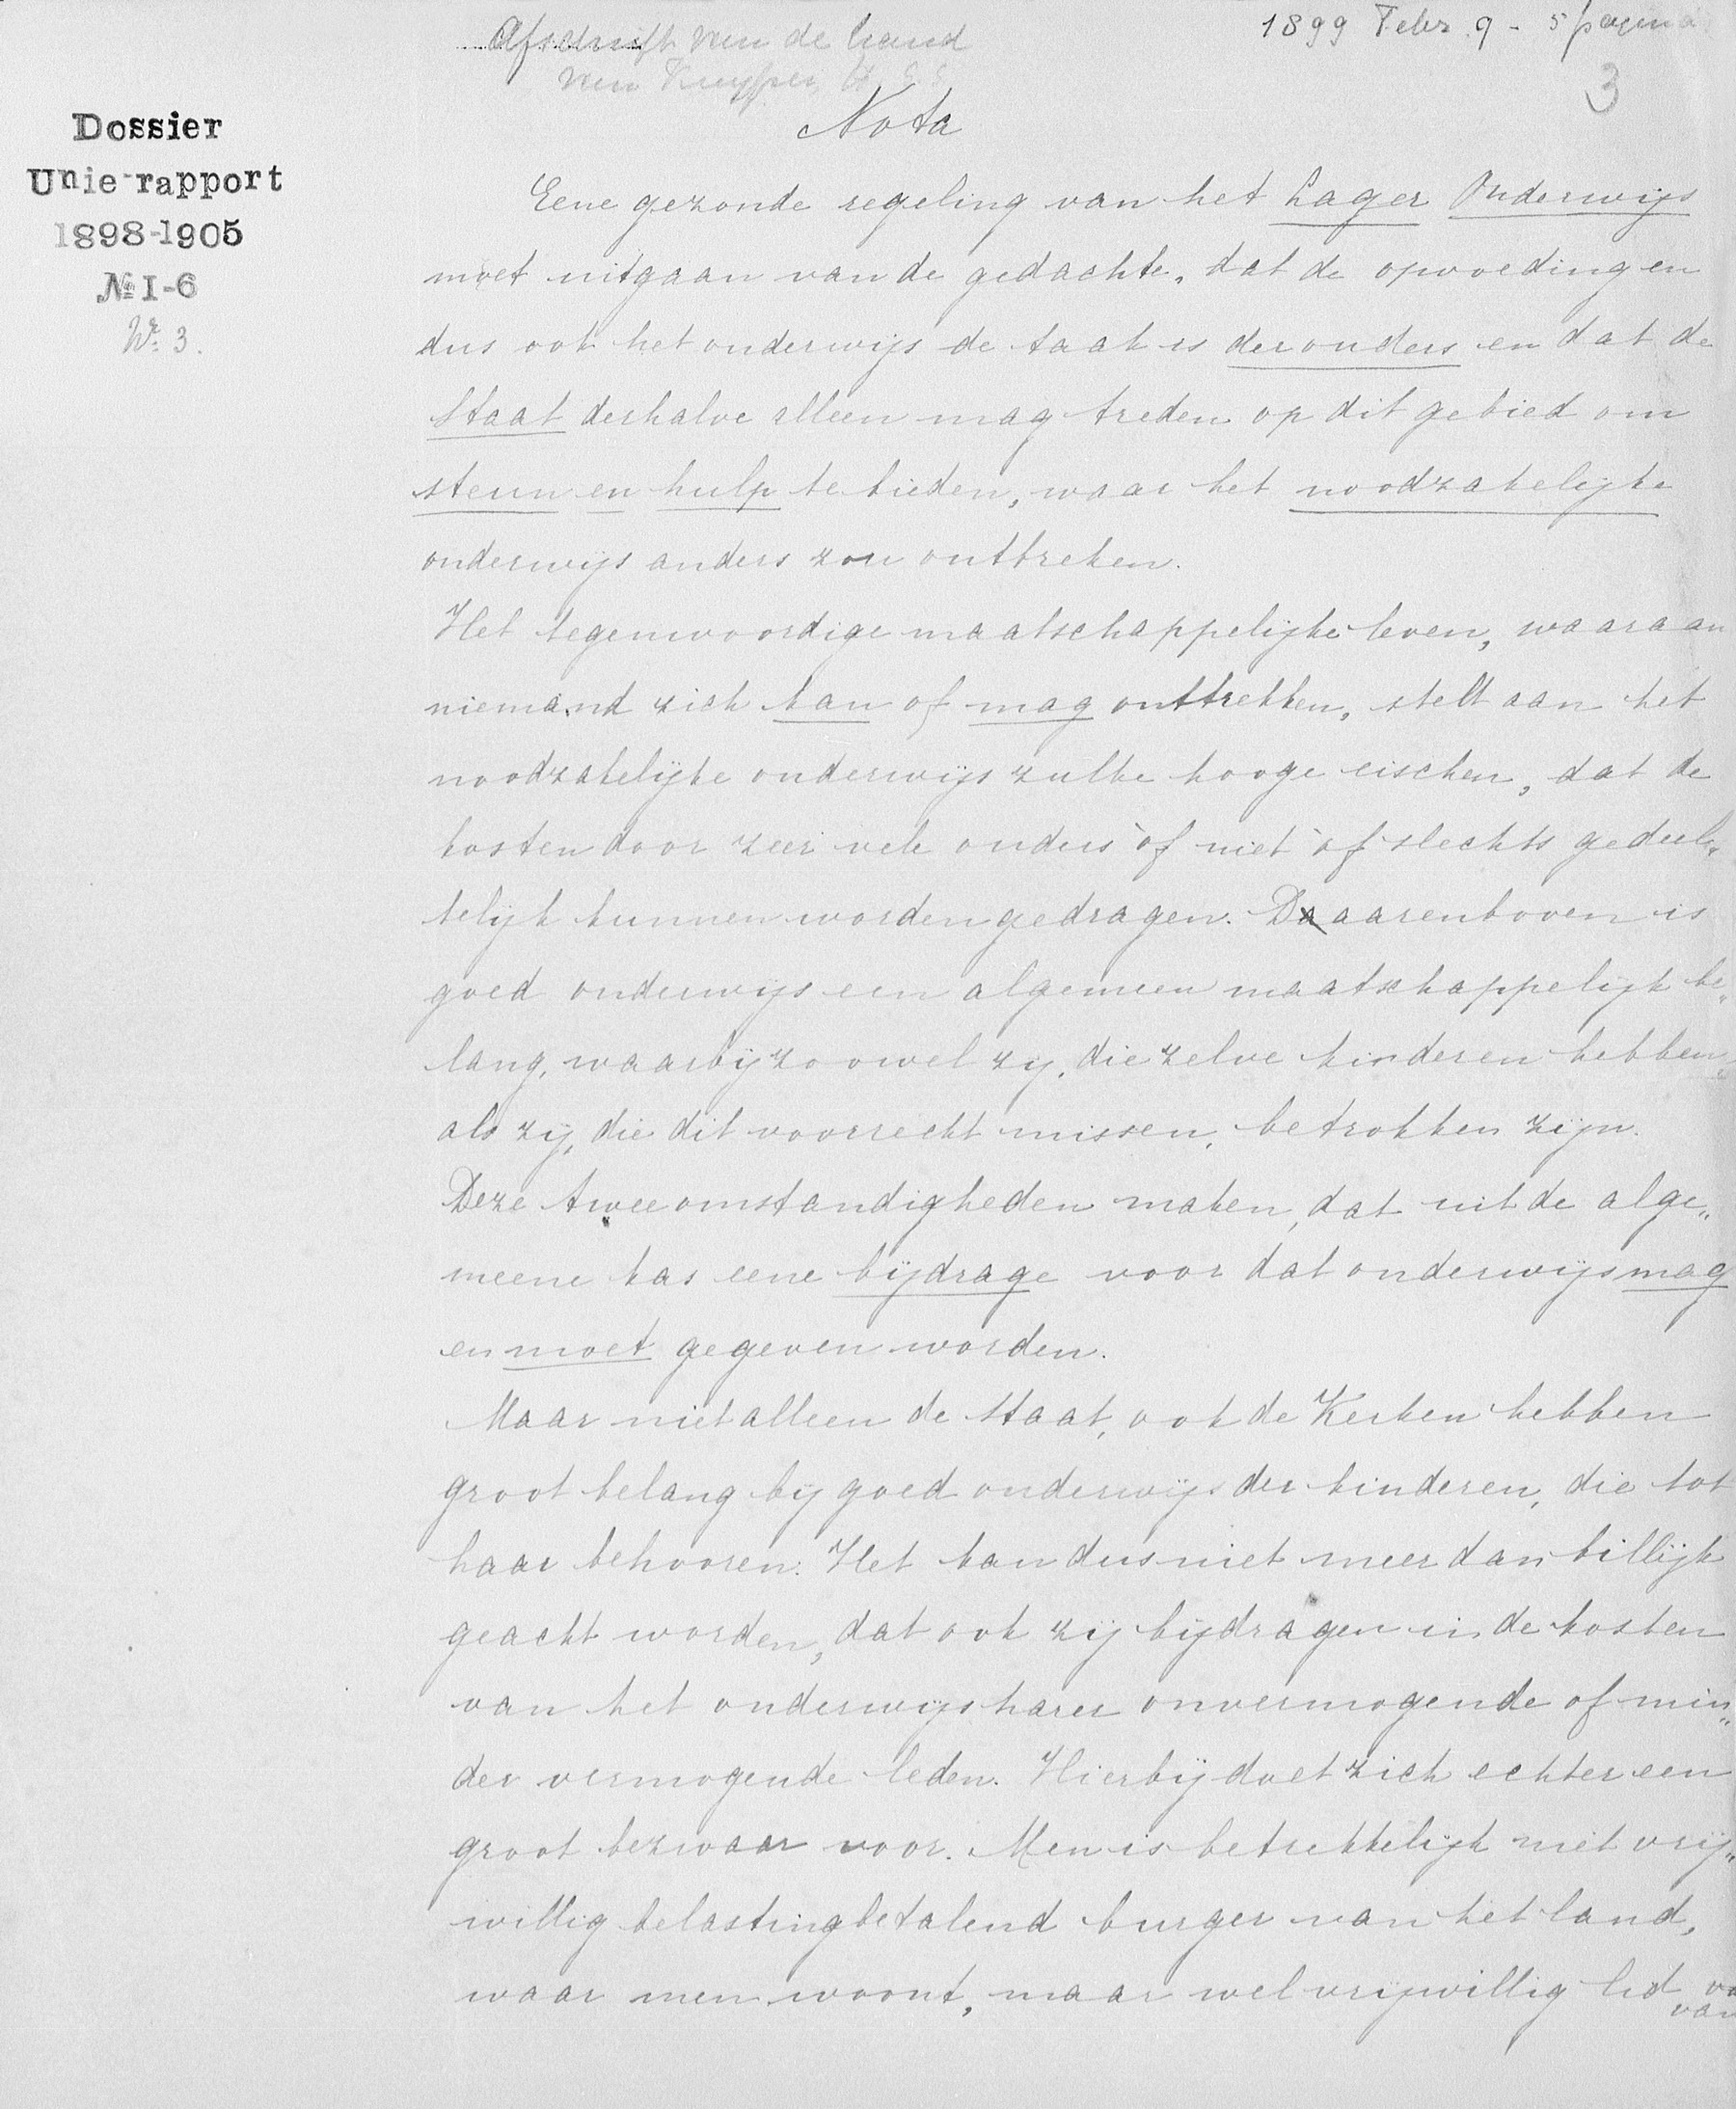 Afschrift van de hand
van Kuyper
1899 Febr. 9 - 5 pagina
3
Dossier
Unie-rapport
1898-1905
№ I-6
Nr. 3.
Nota
Eene gezonde regeling van het Lager Onderwijs
moet uitgaan van de gedachte, dat de opvoeding en
dus ook het onderwijs de taak is der ouders en dat de
Staat derhalve alleen mag treden op dit gebied om
steun en hulp te bieden, waar het noodzakelijke
onderwijs anders zou ontbreken.
Het tegenwoordige maatschappelijke leven, waaraan
niemand zich kan of mag onttrekken, stelt aan het
noodzakelijke onderwijs zulke hooge eischen, dat de
kosten door zeer vele ouders òf niet òf slechts gedeel„
telijk kunnen worden gedragen. Daarenboven is
goed onderwijs een algemeen maatschappelijk be„
lang, waarbij zoowel zij, die zelve kinderen hebben,
als zij, die dit voorrecht missen, betrokken zijn.
Deze twee omstandigheden maken, dat uit de alge„
meene kas eene bijdrage voor dat onderwijs mag
en moet gegeven worden.
Maar niet alleen de Staat, ook de Kerken hebben
groot belang bij goed onderwijs der kinderen, die tot
haar behooren. Het kan dus niet meer dan billijk
geacht worden, dat ook zij bijdragen in de kosten
van het onderwijs harer onvermogende of min„
der vermogende leden. Hierbij doet zich echter een
groot bezwaar voor. Men is betrekkelijk niet vrij„
willig belastingbetalend burger van het land,
waar men woont, maar wel vrijwillig lid
van